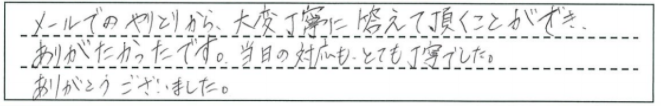 メールでのやりとりから、大変丁寧に答えて頂くことができ、
ありがたかったです。当日の対応も、とても丁寧でした。
ありがとうございました。